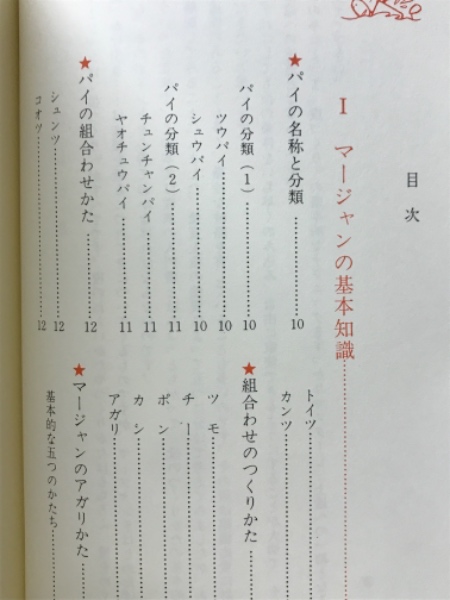 目次
I マージャンの基本知識
★パイの名称と分類 10
パイの分類（1） 10
ツウパイ 10
シュウパイ 10
パイの分類（2） 11
チュンチャンパイ 11
ヤオチュウパイ 11
★パイの組合わせかた 12
シュンツ 12
コオツ 12
トイツ
カンツ
★組合わせのつくりかた
ツモ
チー
ポン
カン
アガリ
★マージャンのアガリかた
基本的な五つのかたち